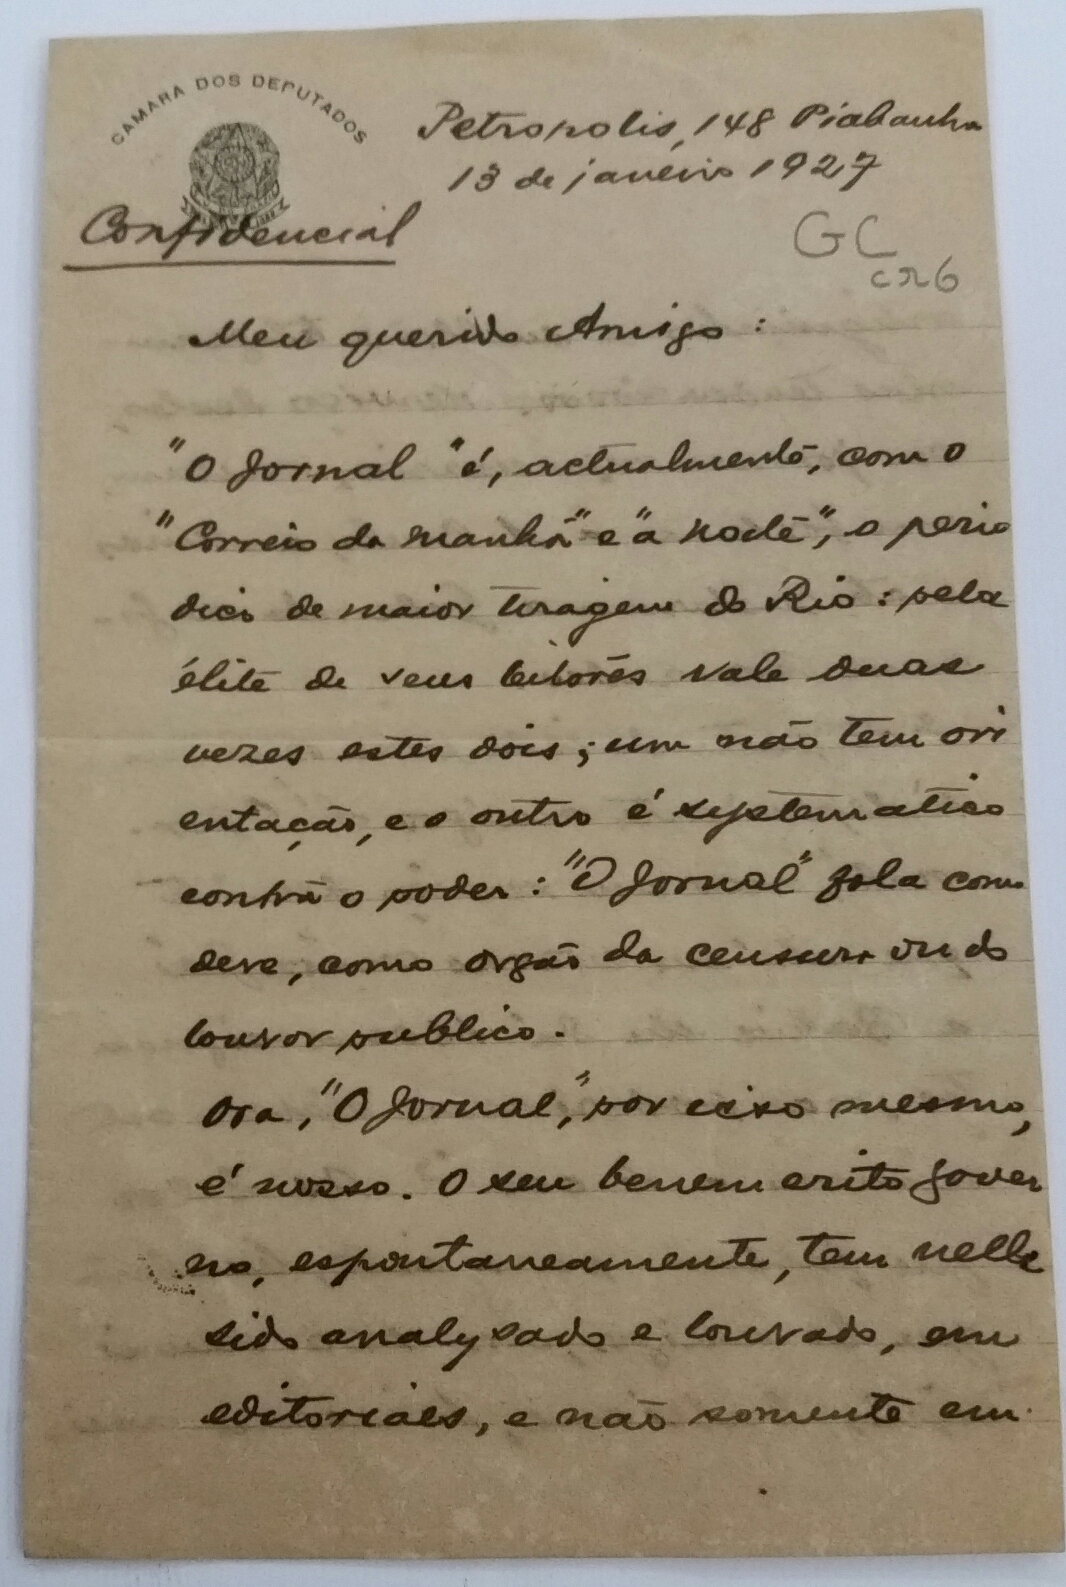 CAMARA DOS DEPUTADOS
Petropolis, 148 Piabanha
13 de janeiro 1927
Confidencial
GC
Meu querido Amigo:
"O Jornal" é, actualmente, com o
"Correio da Manhã" e "A Noite", o perio
dico de maior tiragem do Rio: pela
élite de seus leitores vale duas
vezes estes dois; um não tem ori
entação, e o outro é systematico
contra o poder: "O Jornal" fala como
deve, como orgão da censura ou do
louvor publico.
Ora, "O Jornal", por isso mesmo,
é nosso. O seu benemerito gover
no, espontaneamente, tem nelle
sido analysado e louvado, em
editoriaes, e não somente em